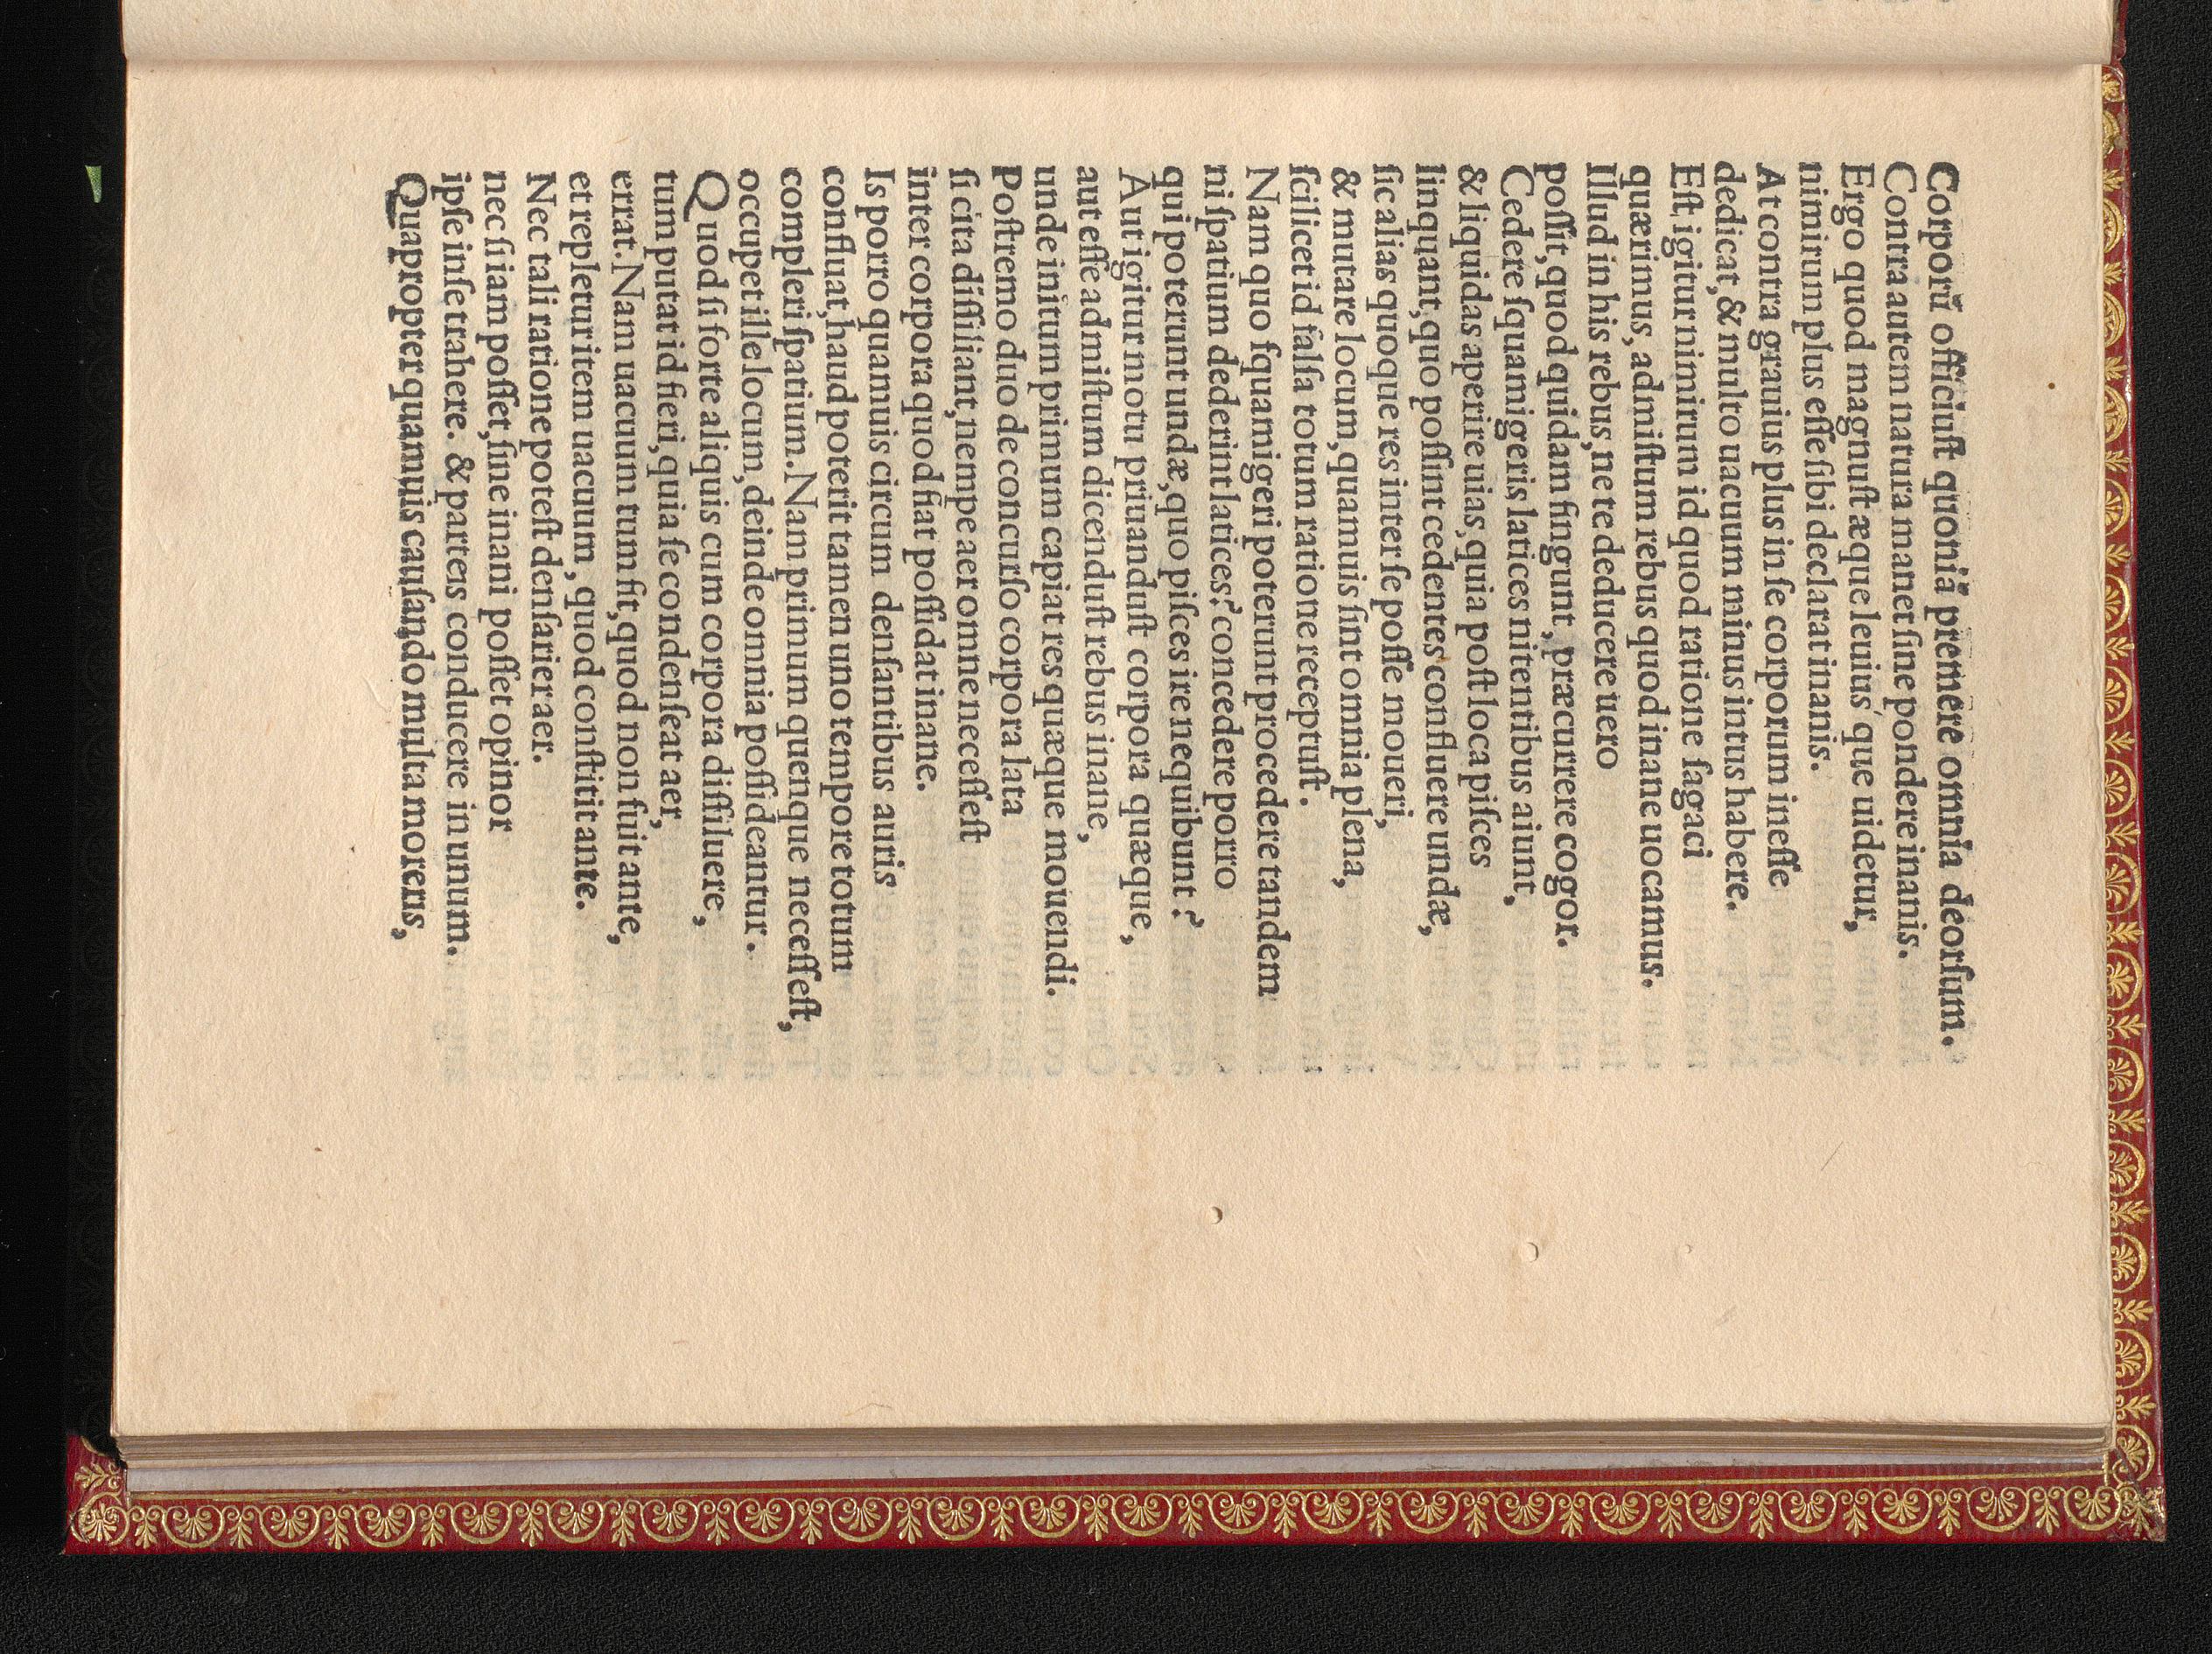 Corporū officiuſt quoniā premere omnia deorſum.
Contra autem natura manet ſine pondere inanis.
Ergo quod magnuſt æque leuius' que uidetur,
nimirum plus eſſe ſibi declarat inanis.
At contra grauius plus in ſe corporum ineſſe
dedicat, & multo uacuum minus intus habere.
Eſt igitur nimirum id quod ratione ſagaci
quærimus, admiſtum rebus quod inane uocamus.
Illud in his rebus, ne te deducere uero
poſſit, quod quidam fingunt, præcurrere cogor.
Cedere ſquamigeris latices nitentibus aiunt,
& liquidas aperire uias, quia poſt loca piſces
linquant, quo poſſint cedentes confluere undæ,
ſic alias quoque res inter ſe poſſe moueri,
& mutare locum, quamuis ſint omnia plena,
ſcilicet id falſa totum ratione receptuſt.
Nam quo ſquamigeri poterunt procedere tandem
ni ſpatium dederint latices? concedere porro
qui poterunt undæ, quo piſces ire nequibunt?
Aut igitur motu priuanduſt corpora quæque,
aut eſſe admiſtum dicenduſt rebus inane,
unde initum primum capiat res quæque mouendi.
Poſtremo duo de concurſo corpora lata
ſi cita diſſiliant, nempe aer omne neceſſeſt
inter corpora quod fiat poſſidat inane.
Is porro quamuis circum denſantibus auris
confluat, haud poterit tamen uno tempore totum
compleri ſpatium. Nam primum quenque neceſſeſt,
occupet ille locum, deinde omnia poſſideantur.
Quod ſi forte aliquis cum corpora diſſiluere,
tum putat id fieri, quia ſe condenſeat aer,
errat. Nam uacuum tum fit, quod non fuit ante,
et repletur item uacuum, quod conſtitit ante.
Nec tali ratione poteſt denſarier aer.
nec ſi iam poſſet, ſine inani poſſet opinor
ipſe in ſe trahere. & parteis conducere in unum.
Quapropter quamuis cauſando multa moreris,